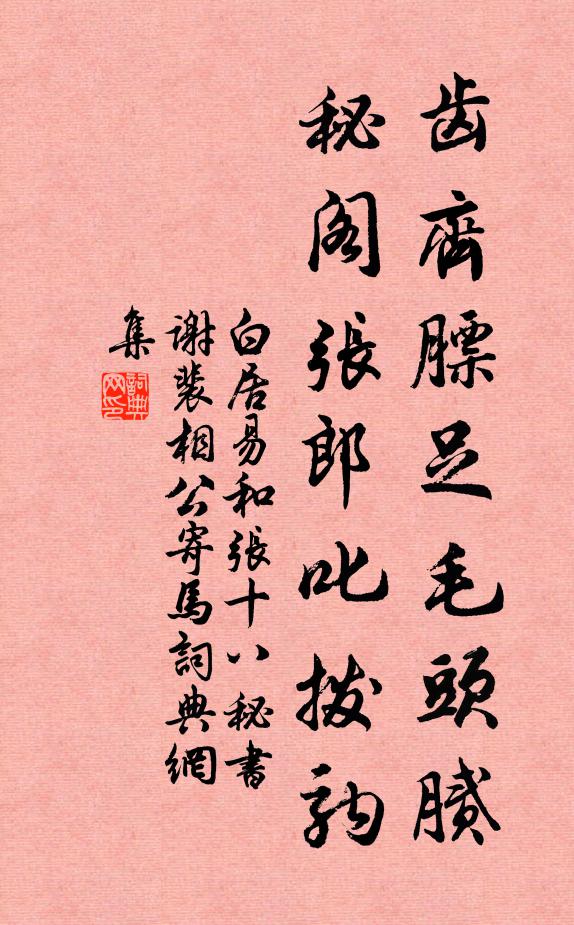 齿齊膘足毛頭膩
秘阁張郎叱拨駒
白居易和張十八秘書
謝裴相公寄馬詞典網
集
詞典
网印